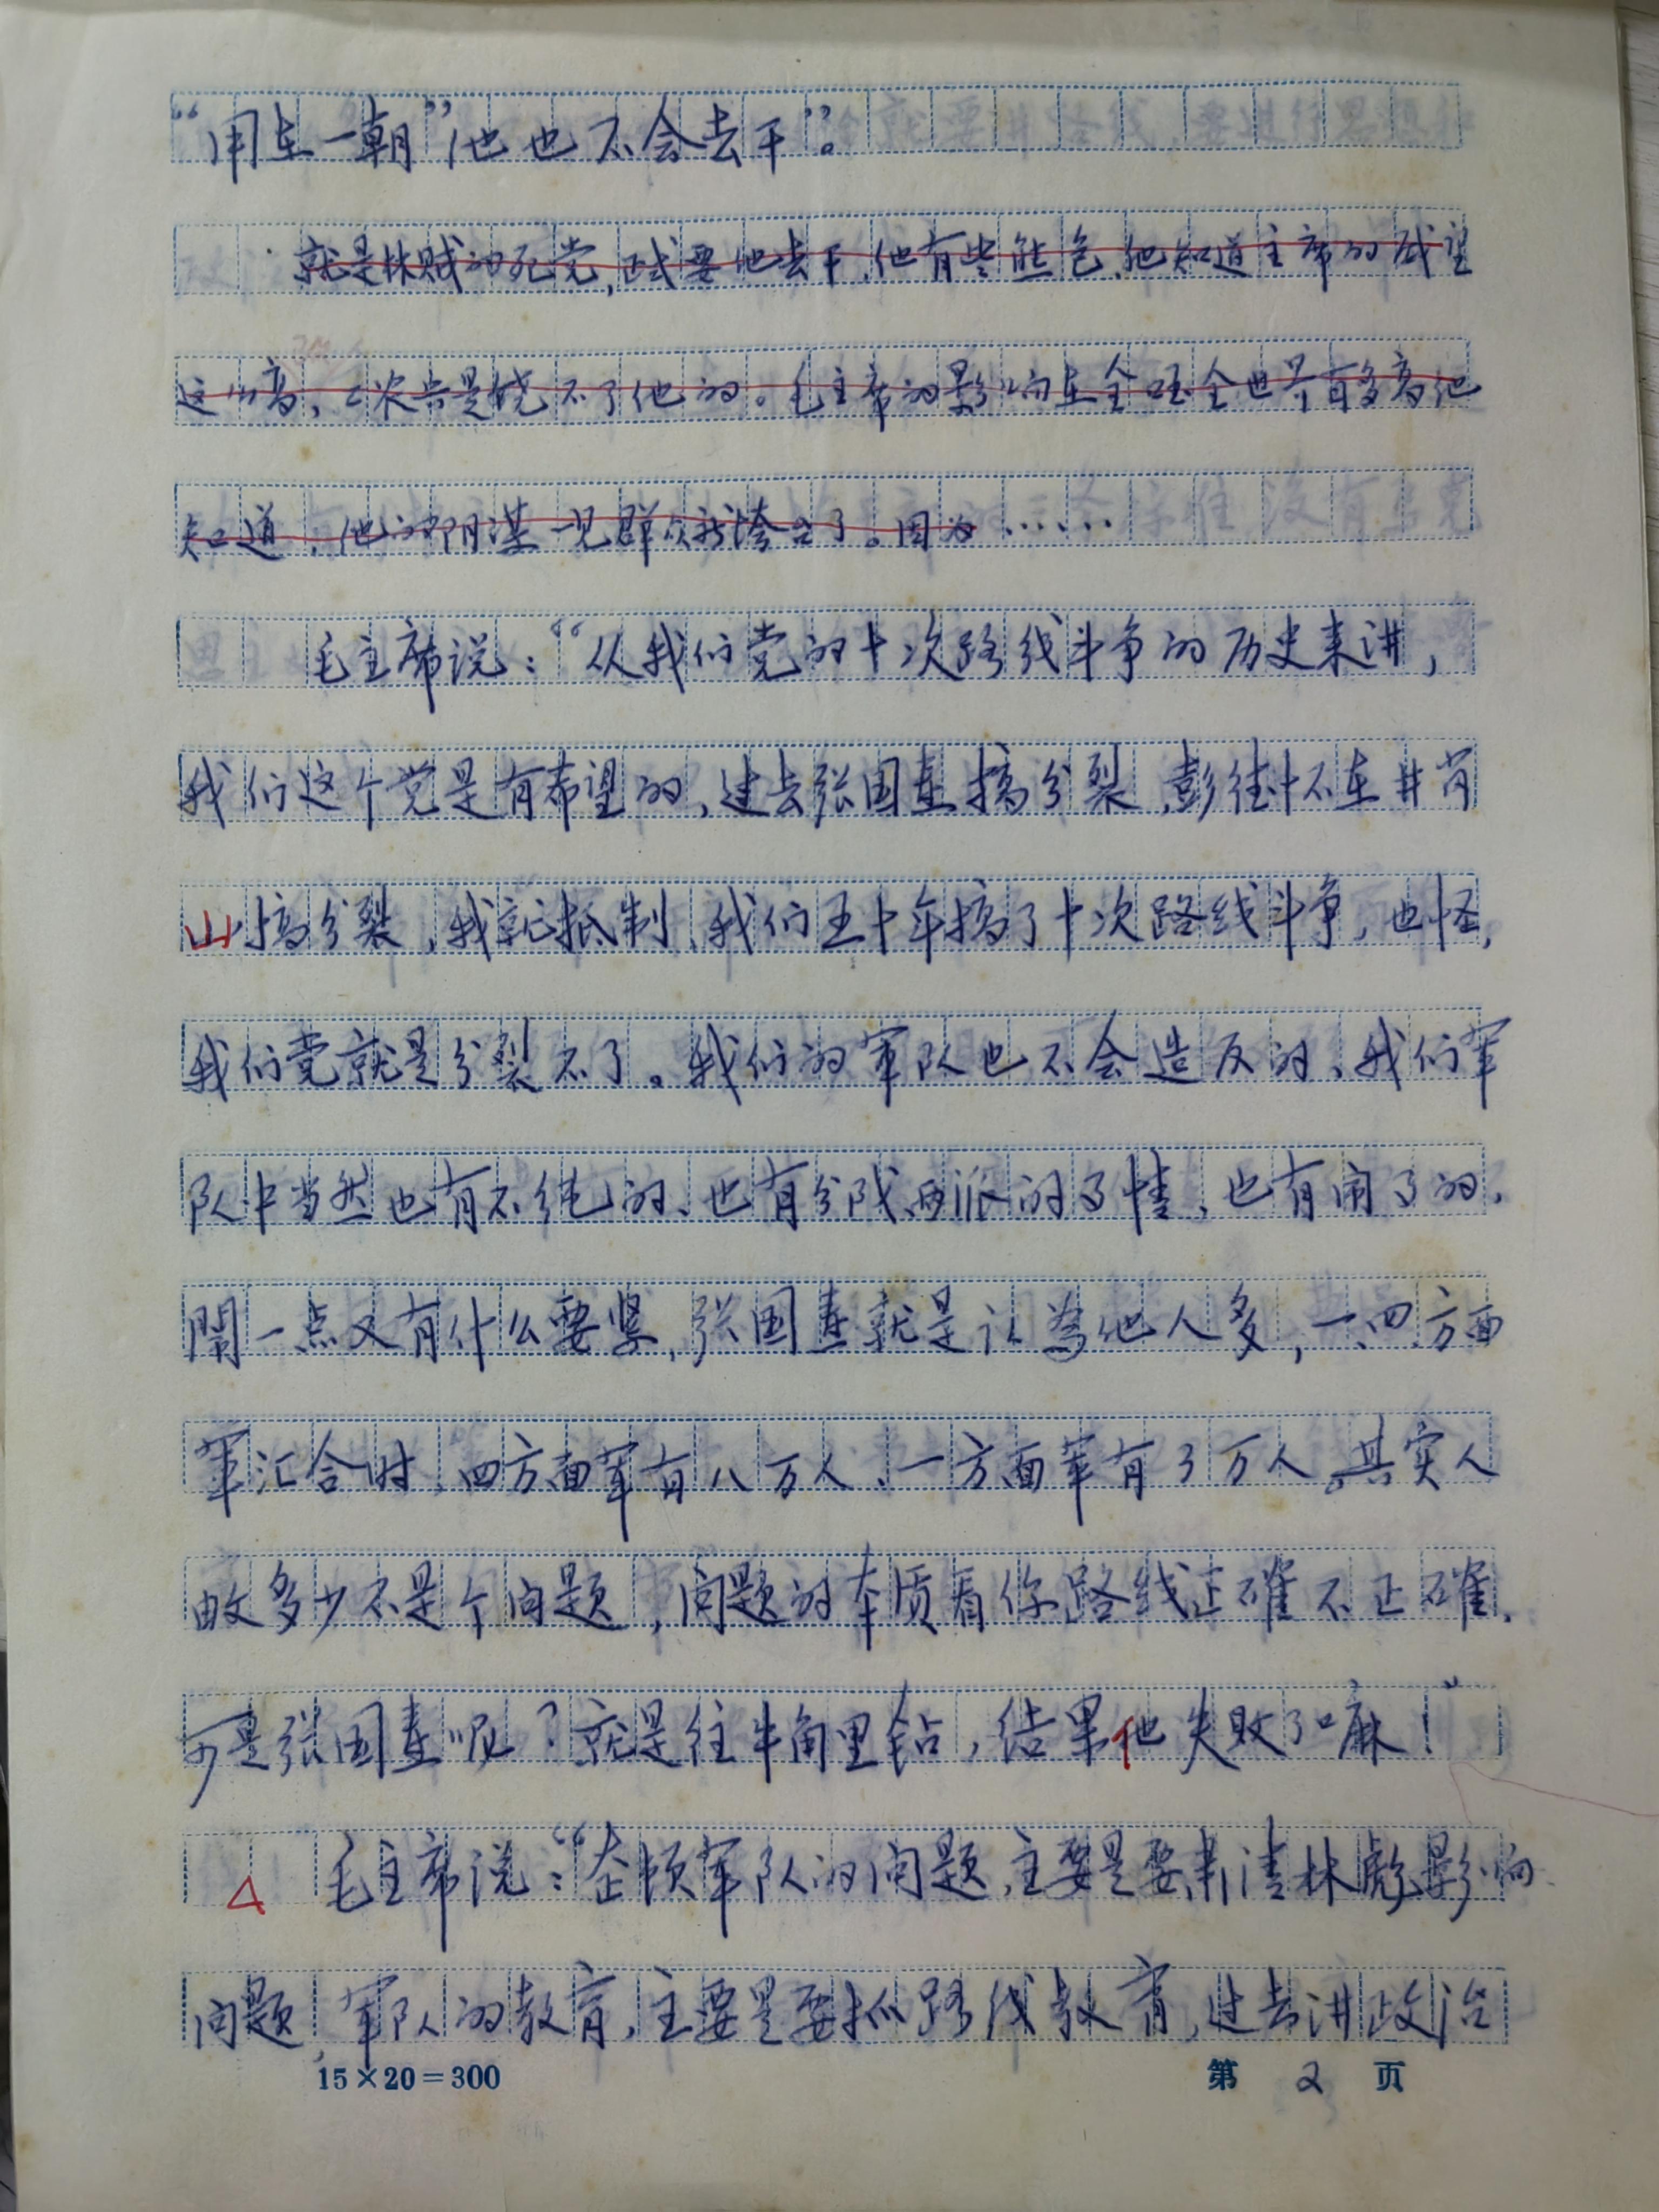 “用在一朝”他也不会去干”。
就是林贼的死党,正式要他去干,他有些难色,他知道主席的威望
这么高,人家六是饶不了他的。毛主席的影响在全国全世界有多高他
知道,他的阴谋一见群众就垮台了。因为……
毛主席说:“从我们党的十次路线斗争的历史来讲,
我们这个党是有希望的,过去张国焘搞分裂,彭德怀在井岗
山搞分裂,我就抵制,我们五十年搞了十次路线斗争,也怪,
我们党就是分裂不了。我们的军队也不会造反的,我们军
队中当然也有不纯的、也有分成两派的事情,也有闹事的,
闹一点又有什么要紧,张国焘就是认为他人多,一、四方面
军汇合时,四方面军有八万人、一方面军有3万人。其实人
数多少不是个问题,问题的本质看你路线正確不正確,
可是张国焘呢?就是往牛角里钻,结果他失败了嘛!”
△ 毛主席说:“整顿军队的问题,主要是要肃清林彪影响
问题,军队的教育,主要是要抓路线教育,过去讲政治
15×20=300
第 2 页